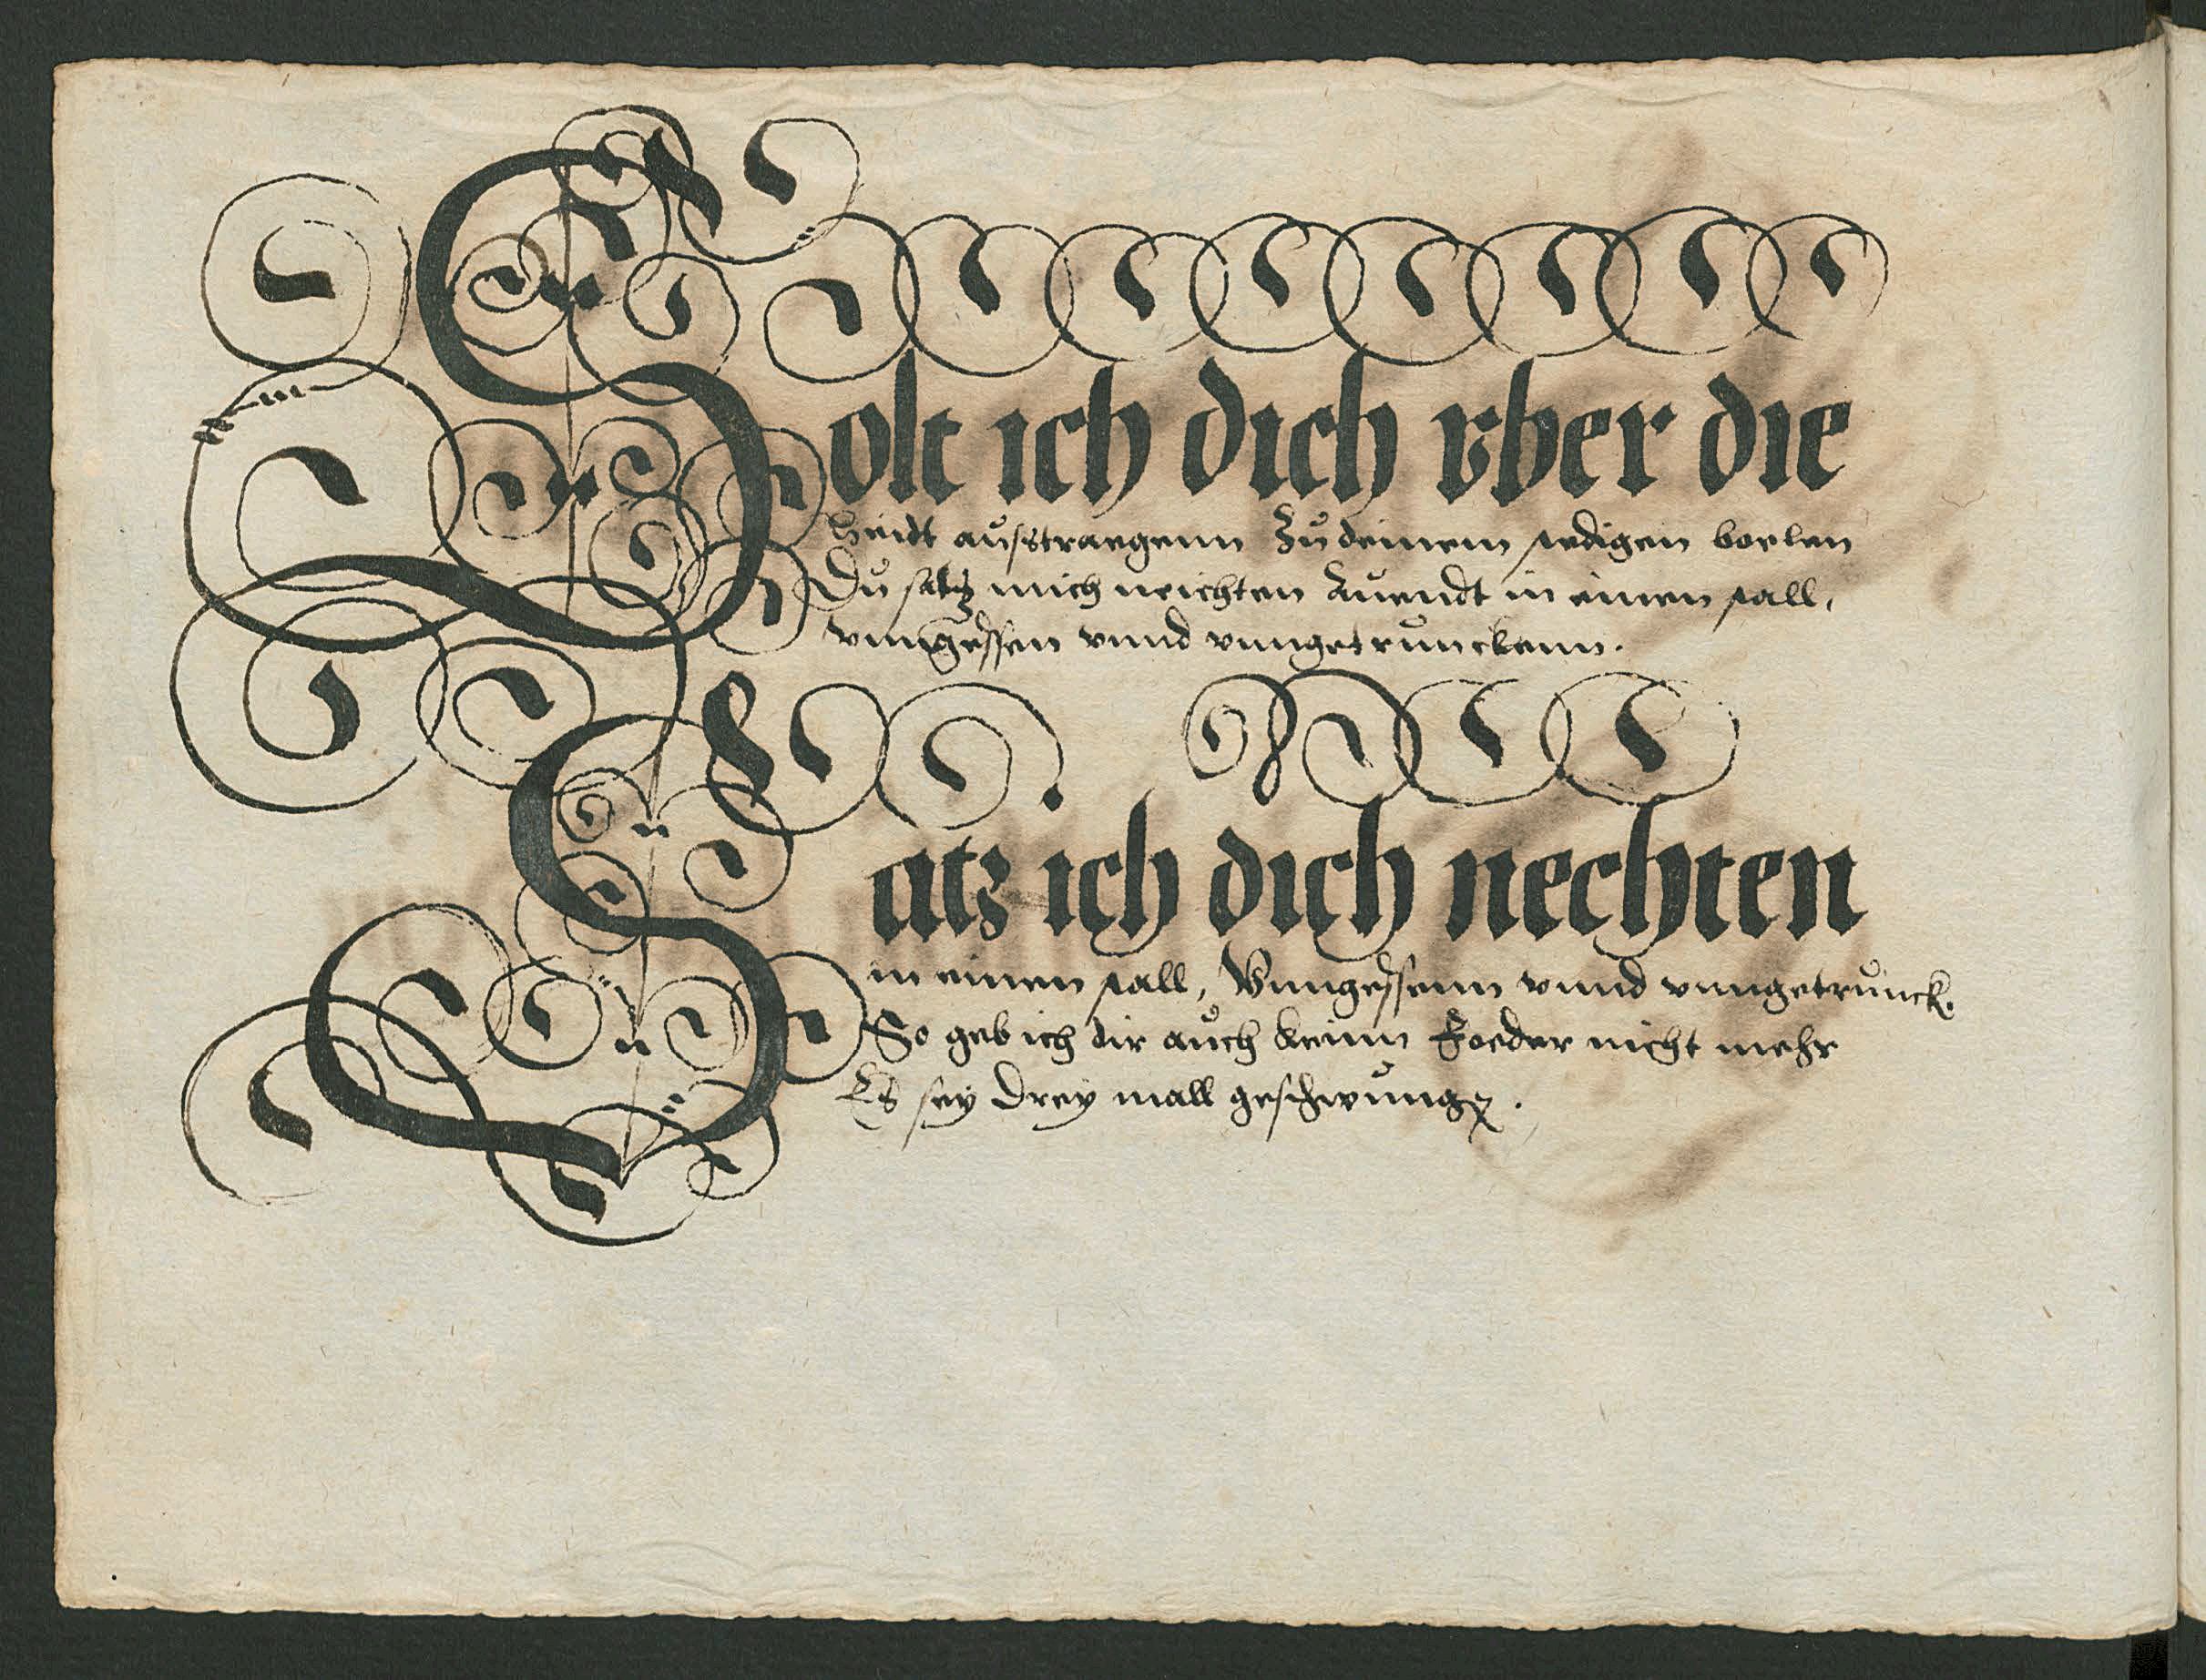 Solt ich dich vber die
Heidt aůsstraegenn Zů deinem stedigen boelen
Dů satz mich neichten Auendt in einen stall,
vnngessen vnnd vnngetrůnckenn.
Satz ich dich nechten
in einen stall, Vnngessenn vnnd vnngetrůnck.
So geb ich dir aůch keinn Foeder nicht mehr
Es sey drey mall geschwůng